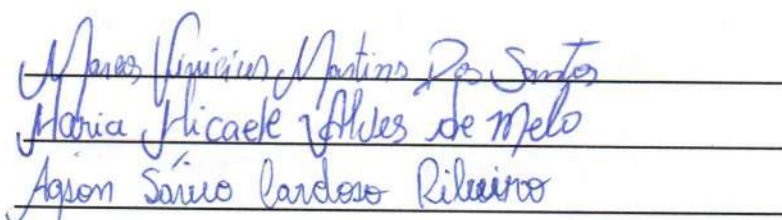 Marcos Vinicius Martins Dos Santos
Maria Micaele Alves de Melo
Agson Sávio Cardoso Ribeiro